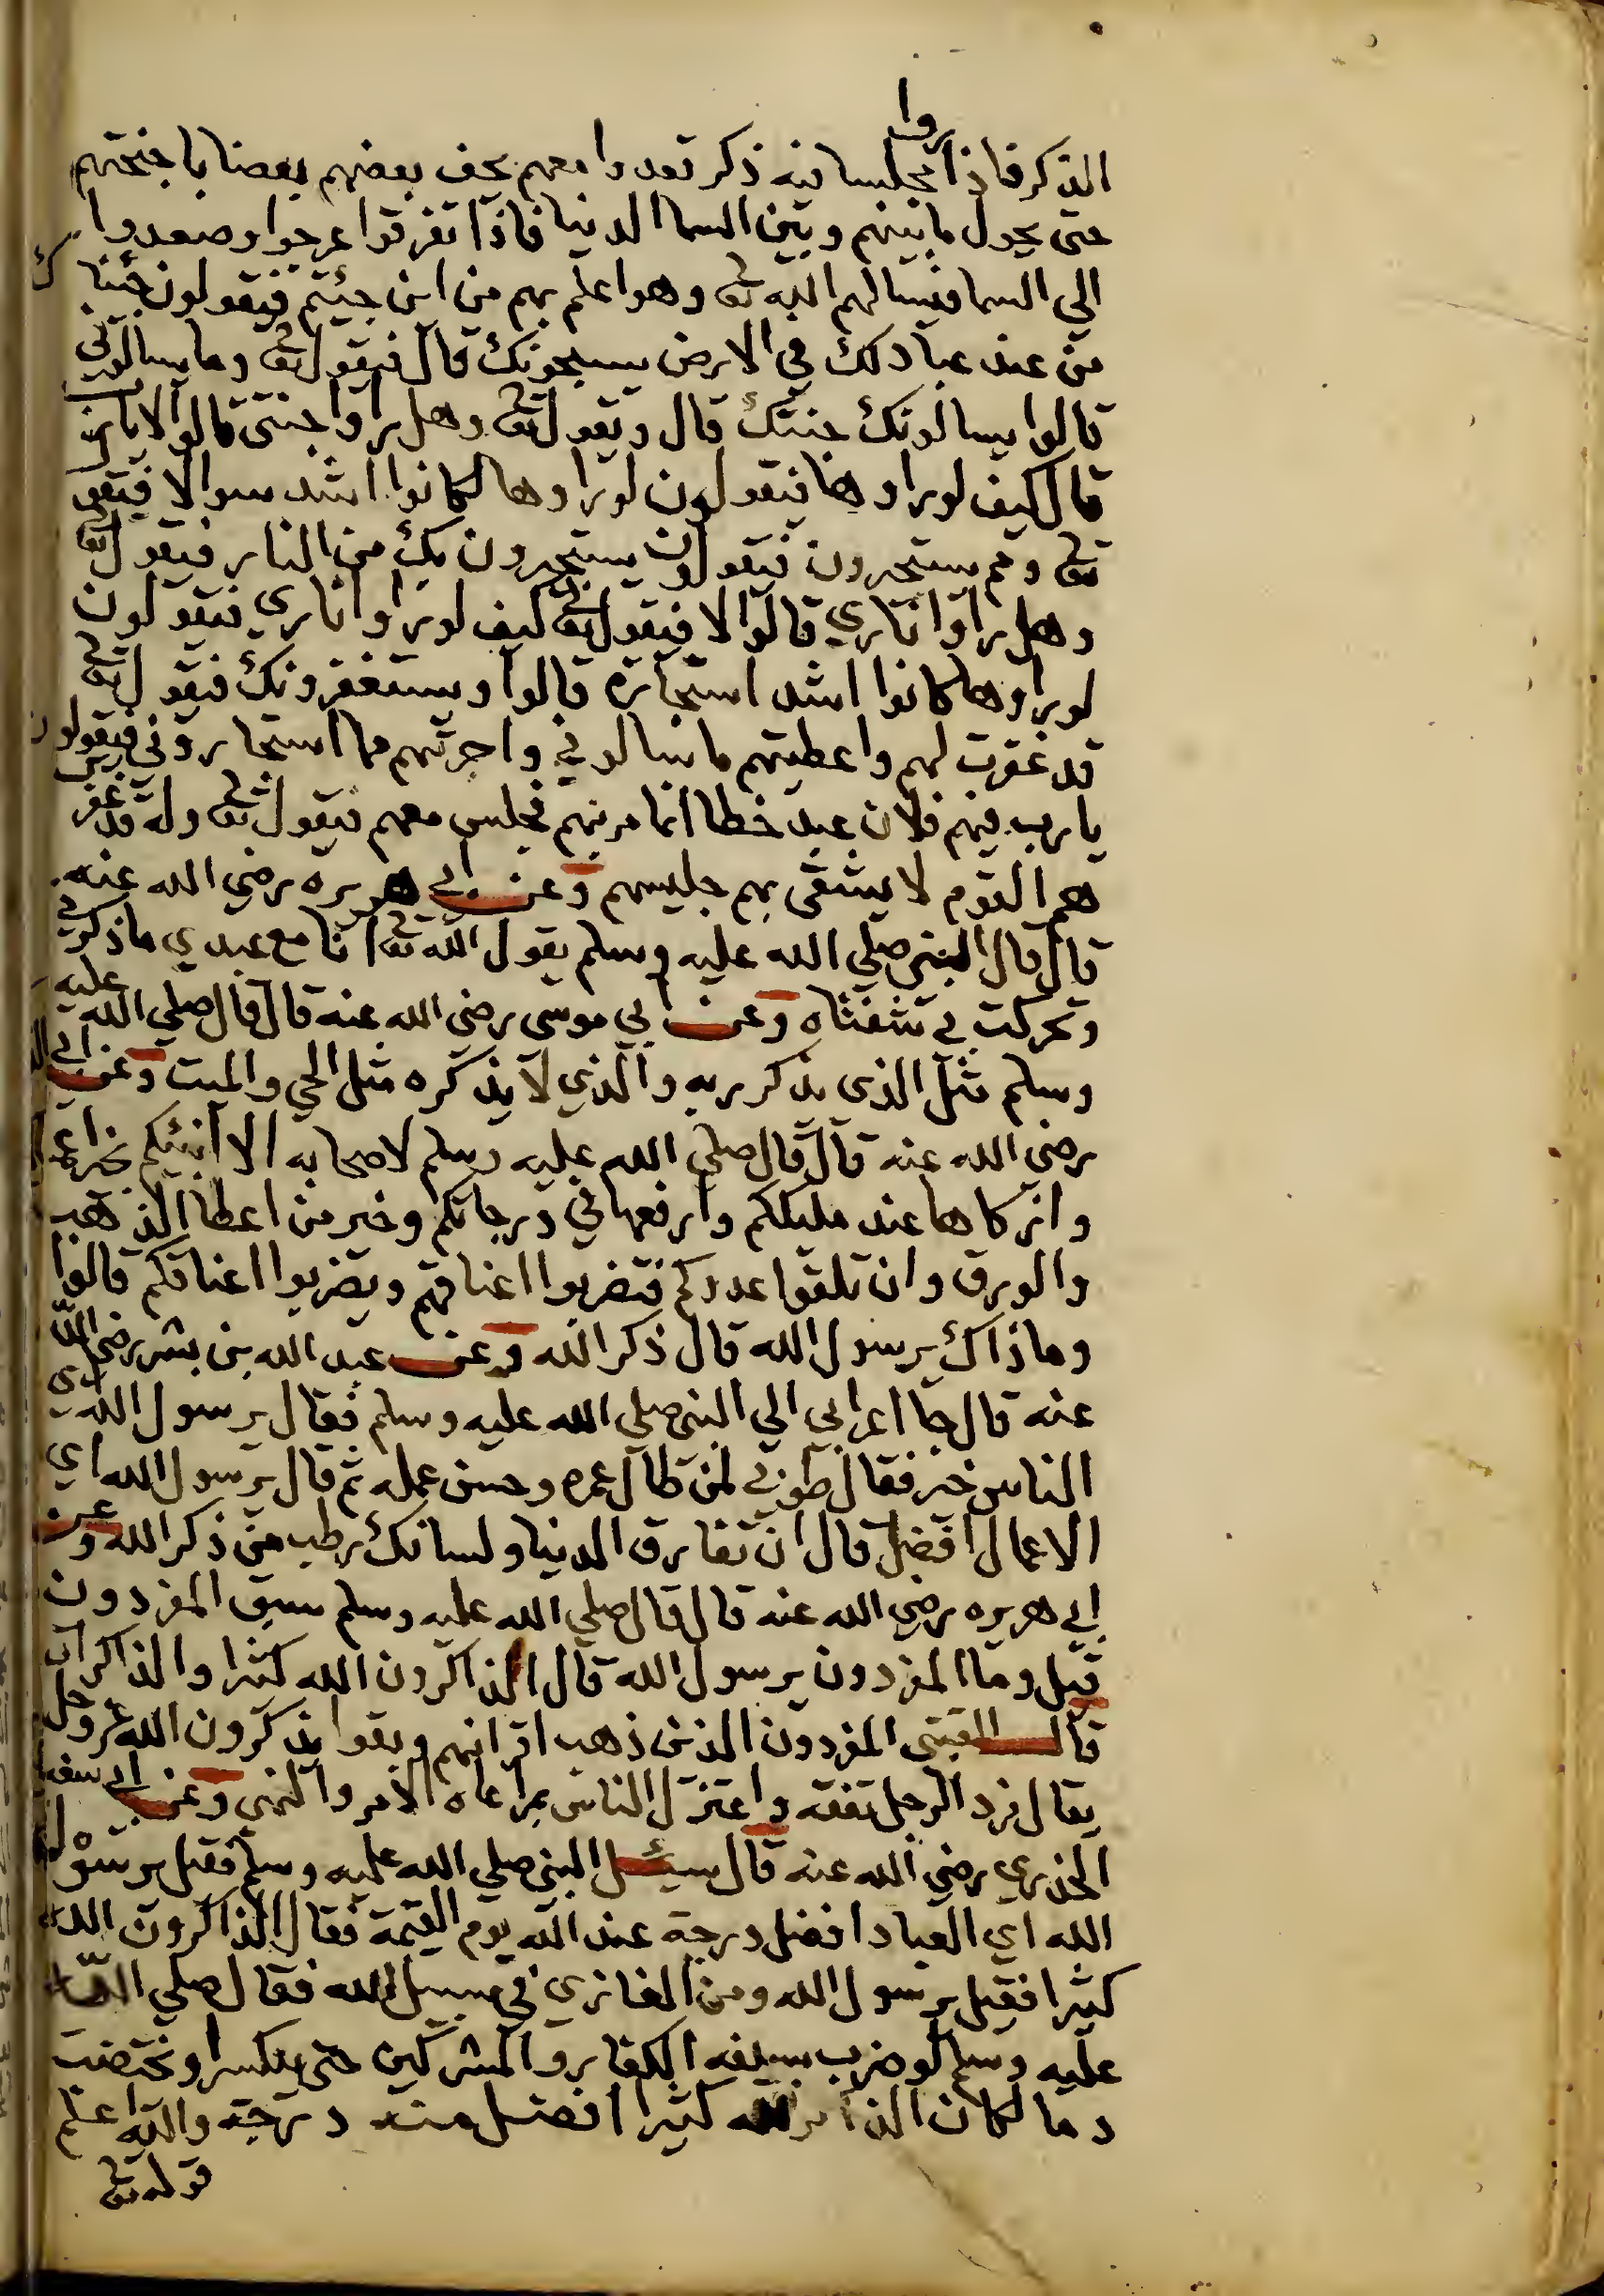 روا
الذكر فاذا مجلسا فيه ذكر قعدوا معهم يحف بعضهم بعضا باجنحتهم
حتى يحول ما بينهم وبين السما الدنيا فاذا تفرقوا عرجوا وصعدوا
الي السما فيسالهم الله تع وهو اعلم بهم من اين جيئتم فيقولون جئنا ك
من عند عبادلك في الارض يسبحونك قال فيقول تع وما يسالوني
قالوا يسالونك جنتك قال ويقول تع وهل راوا جنتي قالوا لا يا رب
قال كيف لو راوها فيقولون لو راوها لكانوا اشد سوالا فيقول
تع ومم يستجيرون فيقولون يستجيرون بك من النار فيقول تع
وهل راوا ناري قالوا لا فيقول تع كيف لو راوا ناري فيقولون
لو راوها كانوا اشد استجارة قالوا ويستغفرونك فيقول تع
قد غفرت لهم واعطيتهم ما سالوني واجرتهم مما استجاروني فيقولون
يا رب فيهم فلان عبد خطا انما مر بهم فجلس معهم فيقول تع وله قد غفرت
هم القوم لا يشقى بهم جليسهم وعن ابي هريره رضي الله عنه
قال قال النبي صلي الله عليه وسلم يقول الله تع انا مع عبدي ما ذكرني
وتحركت بي شفتاه وعن ابي موسى رضي الله عنه قال قال صلي الله عليه
وسلم مثل الذي يذكر ربه والذي لا يذكره مثل الحي والميت وعن ابي
رضي الله عنه قال قال صلي الله عليه وسلم لاصحابه الا انبئكم بخير
وازكاها عند مليككم وارفعها في درجاتكم وخير من اعطا الذهب
والورق وان تلقوا عدوكم فتضربوا اعناقهم ويضربوا اعناقكم قالوا
وما ذاك يرسول الله قال ذكر الله وعن عبد الله بن بشر رضي الله
عنه قال جا اعرابي الي النبي صلي الله عليه وسلم فقال يرسول الله اي
الناس خير فقال طوبي لمن طال عمره وحسن عمله ثم قال يرسول الله اي
الاعمال افضل قال ان تفارق الدنيا ولسانك رطب من ذكر الله وعن
ابي هريره رضي الله عنه قال قال صلي الله عليه وسلم سبق المفردون
قيل وما المفردون يرسول الله قال الذاكرون الله كثيرا والذاكرات
قال القتبى المفردون الذين ذهب اقرانهم وبقوا يذكرون الله عز وجل
يقال فرد الرجل تفقه واعتزل الناس بمراعاه الامر والنهي وعن ابي سعيد
الخدري رضي الله عنه قال سيئل النبي صلي الله عليه وسلم فقيل يرسول
الله اي العباد افضل درجة عند الله يوم القيمة فقال الذاكرون الله
كثيرا فقيل يرسول الله ومن الغازي في سبيل الله فقال صلي الله
عليه وسلم لو ضرب بسيفه الكفار والمشركين حتى ينكسر او يختضب
دما لكان الذاكر الله كثيرا افضل منه درجة والله اعلم
قوله تع